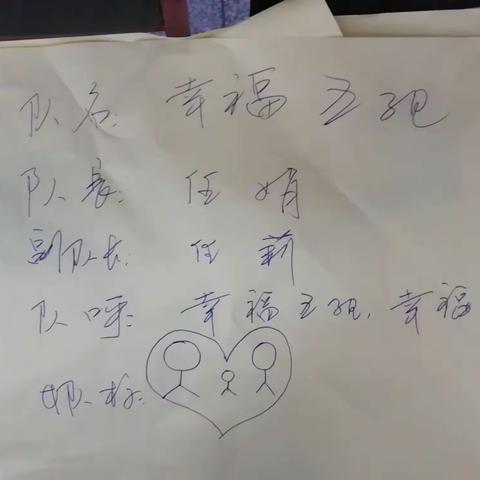 队名: 幸福五组
队长: 任娟
副队长: 任莉
队呼: 幸福五组, 幸福
队标: